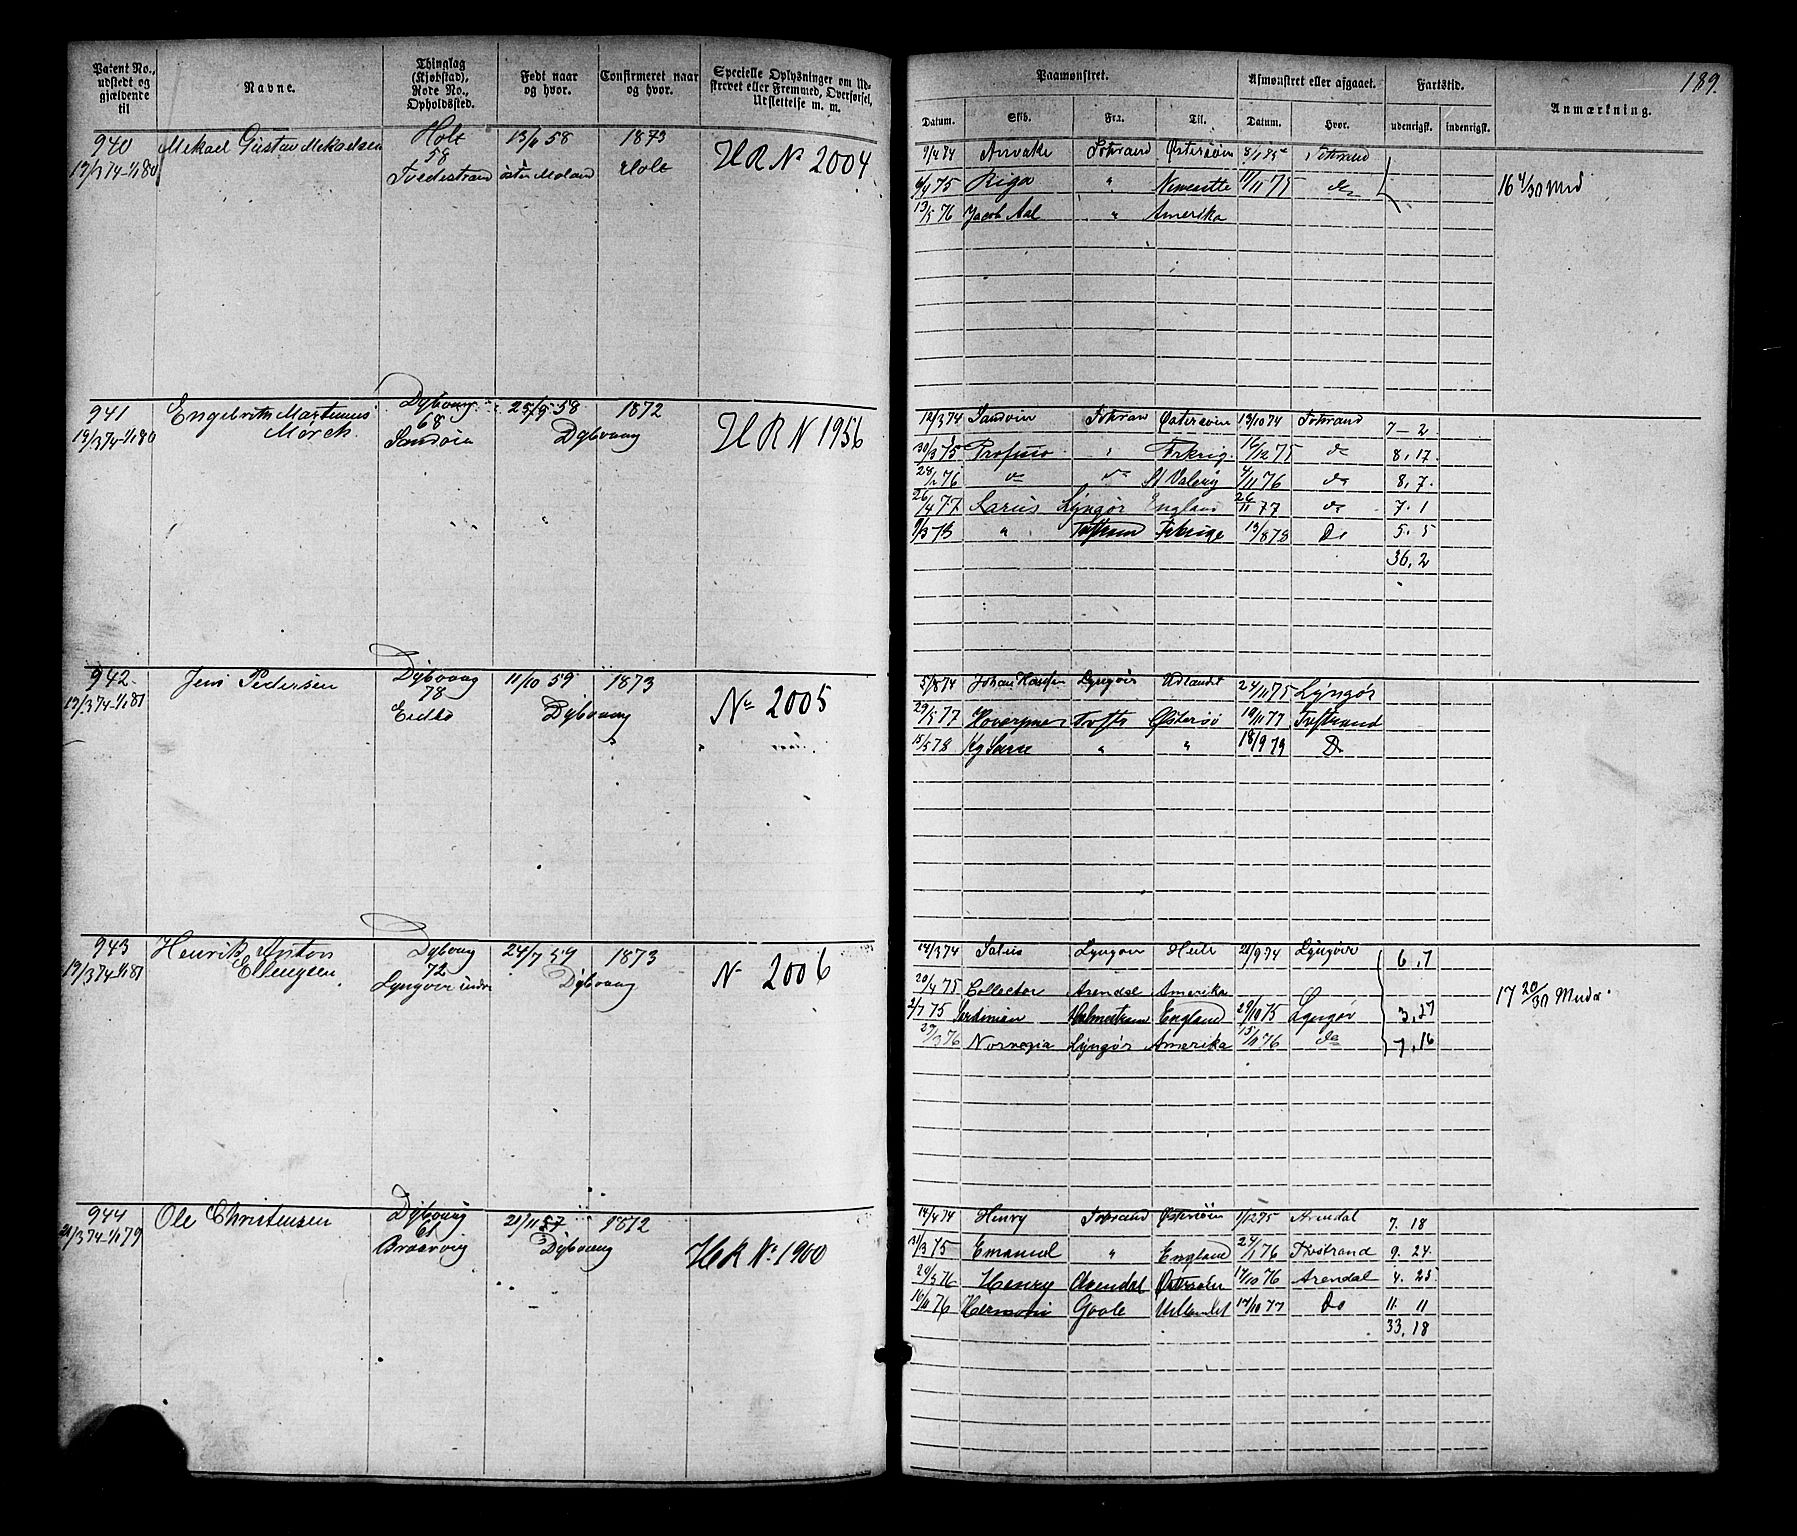 189.
Patent No., udstedt og gjældende til
Navne.
Thinglag (Kjøbstad), Rode No., Opholdssted.
Født naar og hvor.
Confirmeret naar og hvor.
Specielle Oplysninger om Udskrevet eller Fremmed, Overførsel, Udslettelse m. m.
Paamønstret.
Afmønstret eller afgaaet.
Fartstid.
Anmærkning.
Datum. Skib. Fra. Til. Datum. Hvor. udenrigsk. indenrigsk.
940 Mekael Gustav Mekaelsen Holt 13/1 58 1873
13/3 74-1/1 80 58 HRN 2004
Tvedestrand øster Moland Holt
9/4 74 Østersøen
6/4 75 Riga " Newcastle 11/11 75 do
13/5 76 Jacob Aal " Amerika
16 4/30 Mnd
941 Engebrith Martinius Dybvaag 25/9 58 1872
13/3 74-1/1 80 Mørch 68 Dybvaag HRN 1956
Sandøen
12/3 74 Sandøen Østersøen 13/10 74 7-2
30/3 75 16/12 75 do 8,17
28/2 76 do do St Valery 4/11 76 do 8,7
26/4 77 Larius Lyngør England 26/11 77 do 7.1
" 13/8 78 Do 5.5
36,2
942 Jens Pedersen Dybvaag 11/10 59 1873
13/3 74-1/1 81 78 No 2005
Dybvaag
5/8 74 Johan Hansen Lyngør Udlandet 24/11 75 Lyngør
29/5 77 Østersø 19/11 77 Tvstrand
15/5 78 " " 18/9 79 Do
943 Henrik Anton Dybvaag 24/7 59 1873
13/3 74-1/1 81 Ellengsen 72 N 2006
Lyngøer indre Dybvaag
14/3 74 Lyngøer 21/9 74 Lyngøer 6,7
20/4 75 Collector Arendal Amerika
2/7 75 England 29/10 75 Lyngør 3,27
27/3 76 Norvegia Lyngør Amerika 15/11 76 do 7,16
17 20/30 Mnder
944 Ole Christensen Dybvaag 21/11 57 1872
21/3 74-1/1 79 61 Dybvaag HRNo 1900
14/4 74 Henry Østersøen 1/12 75 Arendal 7.18
31/3 75 Emanuel " England 24/1 76 Tvstrand 9.24
29/5 76 Henry Arendal Østersøen 17/10 76 Arendal 4.25
10/11 76 Goole Udlandet 17/10 77 Do 11.11
33,18